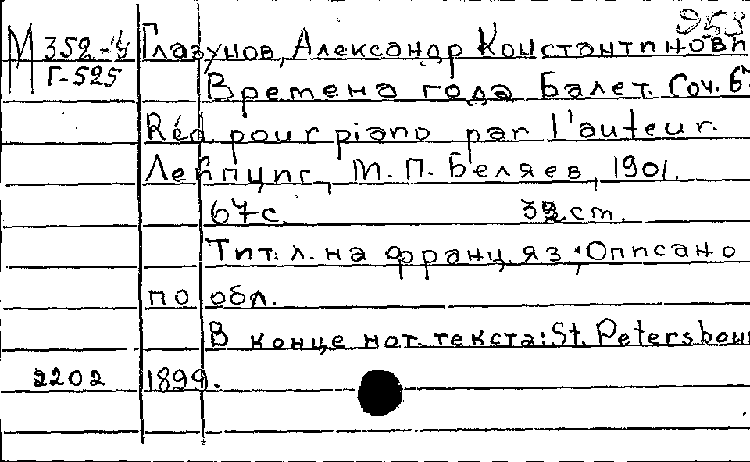 953
М 352-4 Глазунов, Александр Константинови
Г-525 Времена года Балет. Соч. 6
Réd pour piano par l'auteur.
Лейпциг, М. П. Беляев, 1901.
67 с. 32 cm.
Тит. л. на франц. яз; Описано
по обл.
В конце нот. текста: St. Petersbour
2202 1899.